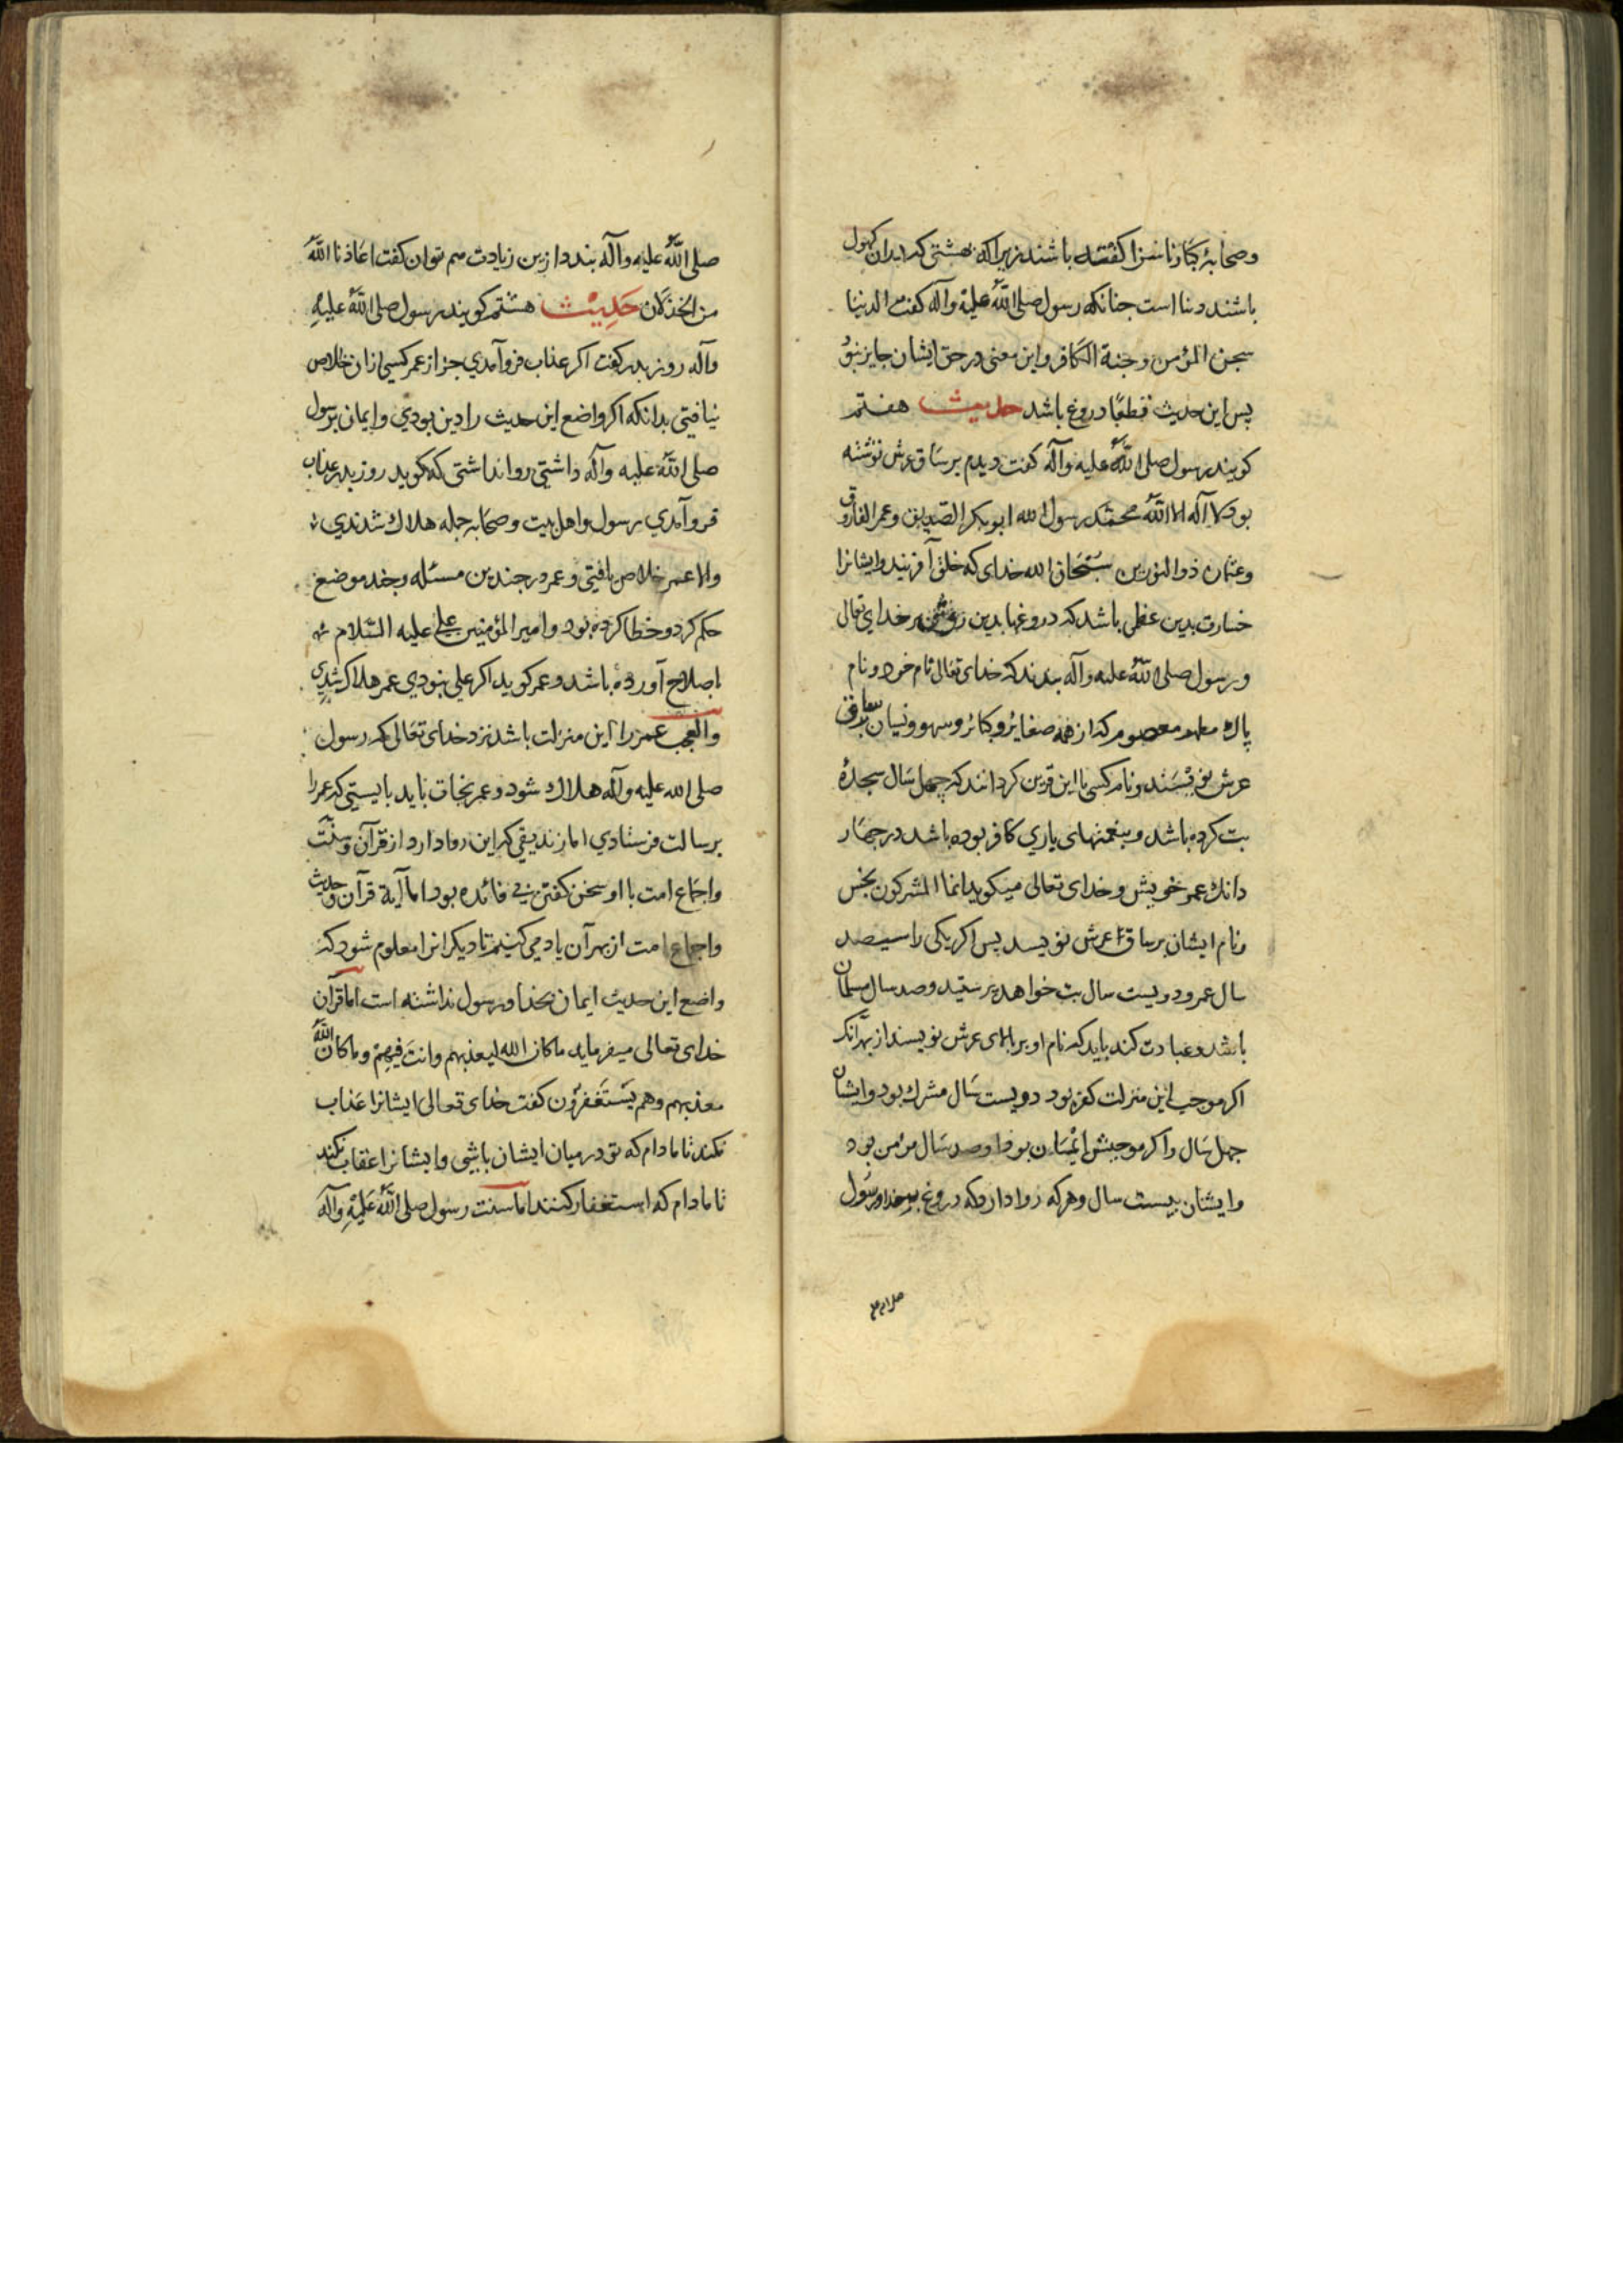 وصحابهٔ کبار ناسزا کفته باشند زیرا که بهشتی که دران کهول
باشند دنیا است جنانکه رسول صلی اللّٰه علیه وآله کفت الدنیا
سجن المؤمن وجنة الکافر واین معنی در حق ایشان جایز نبو
پس این حدیث قطعًا دروغ باشد حدیث هفتم
کویند رسول صلی اللّٰه علیه وآله کفت دیدم بر ساق عرش نوشته
بود لا آله الا اللّٰه محمّد رسول الله ابوبکر الصدیق وعمر الفاروق
وعثمان ذوالنورین سبحان الله خدای که خلق آفریند وایشانرا
خسارت بدین عظمی باشد که دروغها بدین روشنی بر خدای تعالی
ورسول صلی اللّٰه علیه وآله بندند که خدای تعالی نام خود ونام
پاك مطهر معصوم که از همه صغایر وکبائر وسهو ونسیان بر ساق
عرش نویسند ونام کسی با این قرین کردانند که چهل سال سجدهٔ
بت کرده باشد وبنعمتهای باری کافر بوده باشد در جهار
دانك عمر خویش وخدای تعالی میکوید انما المشرکون نجس
ونام ایشان بر ساق عرش نویسد پس اکر یکی را سیصد
سال عمر ودویست سال بت خواهد پرستید وصد سال مسلمان
باشد وعبادت کند باید که نام او بر بالای عرش نویسند از بهر آنک
اکر موجب این منزلت کفر بود دویست سال مشرك بود وایشان
جهل سال واکر موجبش ایمان بود او صد سال مؤمن بود
وایشان بیست سال وهر که روا دارد که دروغ بر خدا ورسول
صلی اللّٰه علیه وآله بندد ازین زیادت هم توان کفت اعاذنا اللّٰه
من الخذلان حَدِیْث هشتم کویند رسول صلی اللّٰه علیهِ
وآله روز بدر کفت اکر عذاب فرو آمدی جز از عمر کسی ازان خلاص
نیافتی بدانکه اکر واضع این حدیث را دین بودی وایمان برسول
صلی اللّٰه علیه وآله داشتی روا نداشتی که کوید روز بدر عذاب
فرو آمدی رسول واهل بیت وصحابه جمله هلاك شدندی
والا عمر خلاص یافتی وعمر در جندین مسئله وجند موضع
حکم کرد وخطا کرده بود وامیر المؤمنین علی علیه السّلام
اصلاح آورده باشد وعمر کوید اکر علی نبودی عمر هلاك شدی
والعجب عمر را این منزلت باشد نزد خدای تعالی که رسول
صلی الله علیه وآله هلاك شود وعمر نجات یابد بایستی که عمر را
برسالت فرستادی اما زندیقی که این روا دارد از قرآن وسنّت
واجماع امت با او سخن کفتن بی فائده بود اما آیة قرآن وحدیث
واجماع امت از بهر آن یاد می کنیم تا دیکرانرا معلوم شود که
واضع این حدیث ایمان بخدا ورسول نداشته است اما قرآن
خدای تعالی میفرماید ما کان الله لیعذبهم وانت فیهم وما کان اللّٰه
معذبهم وهم یستغفرون کفت خدای تعالی ایشانرا عذاب
نکند تا مادام که تو در میان ایشان باشی وایشانرا عقاب نکند
تا مادام که استغفار کنند اما سنت رسول صلی اللّٰه علیه وآله